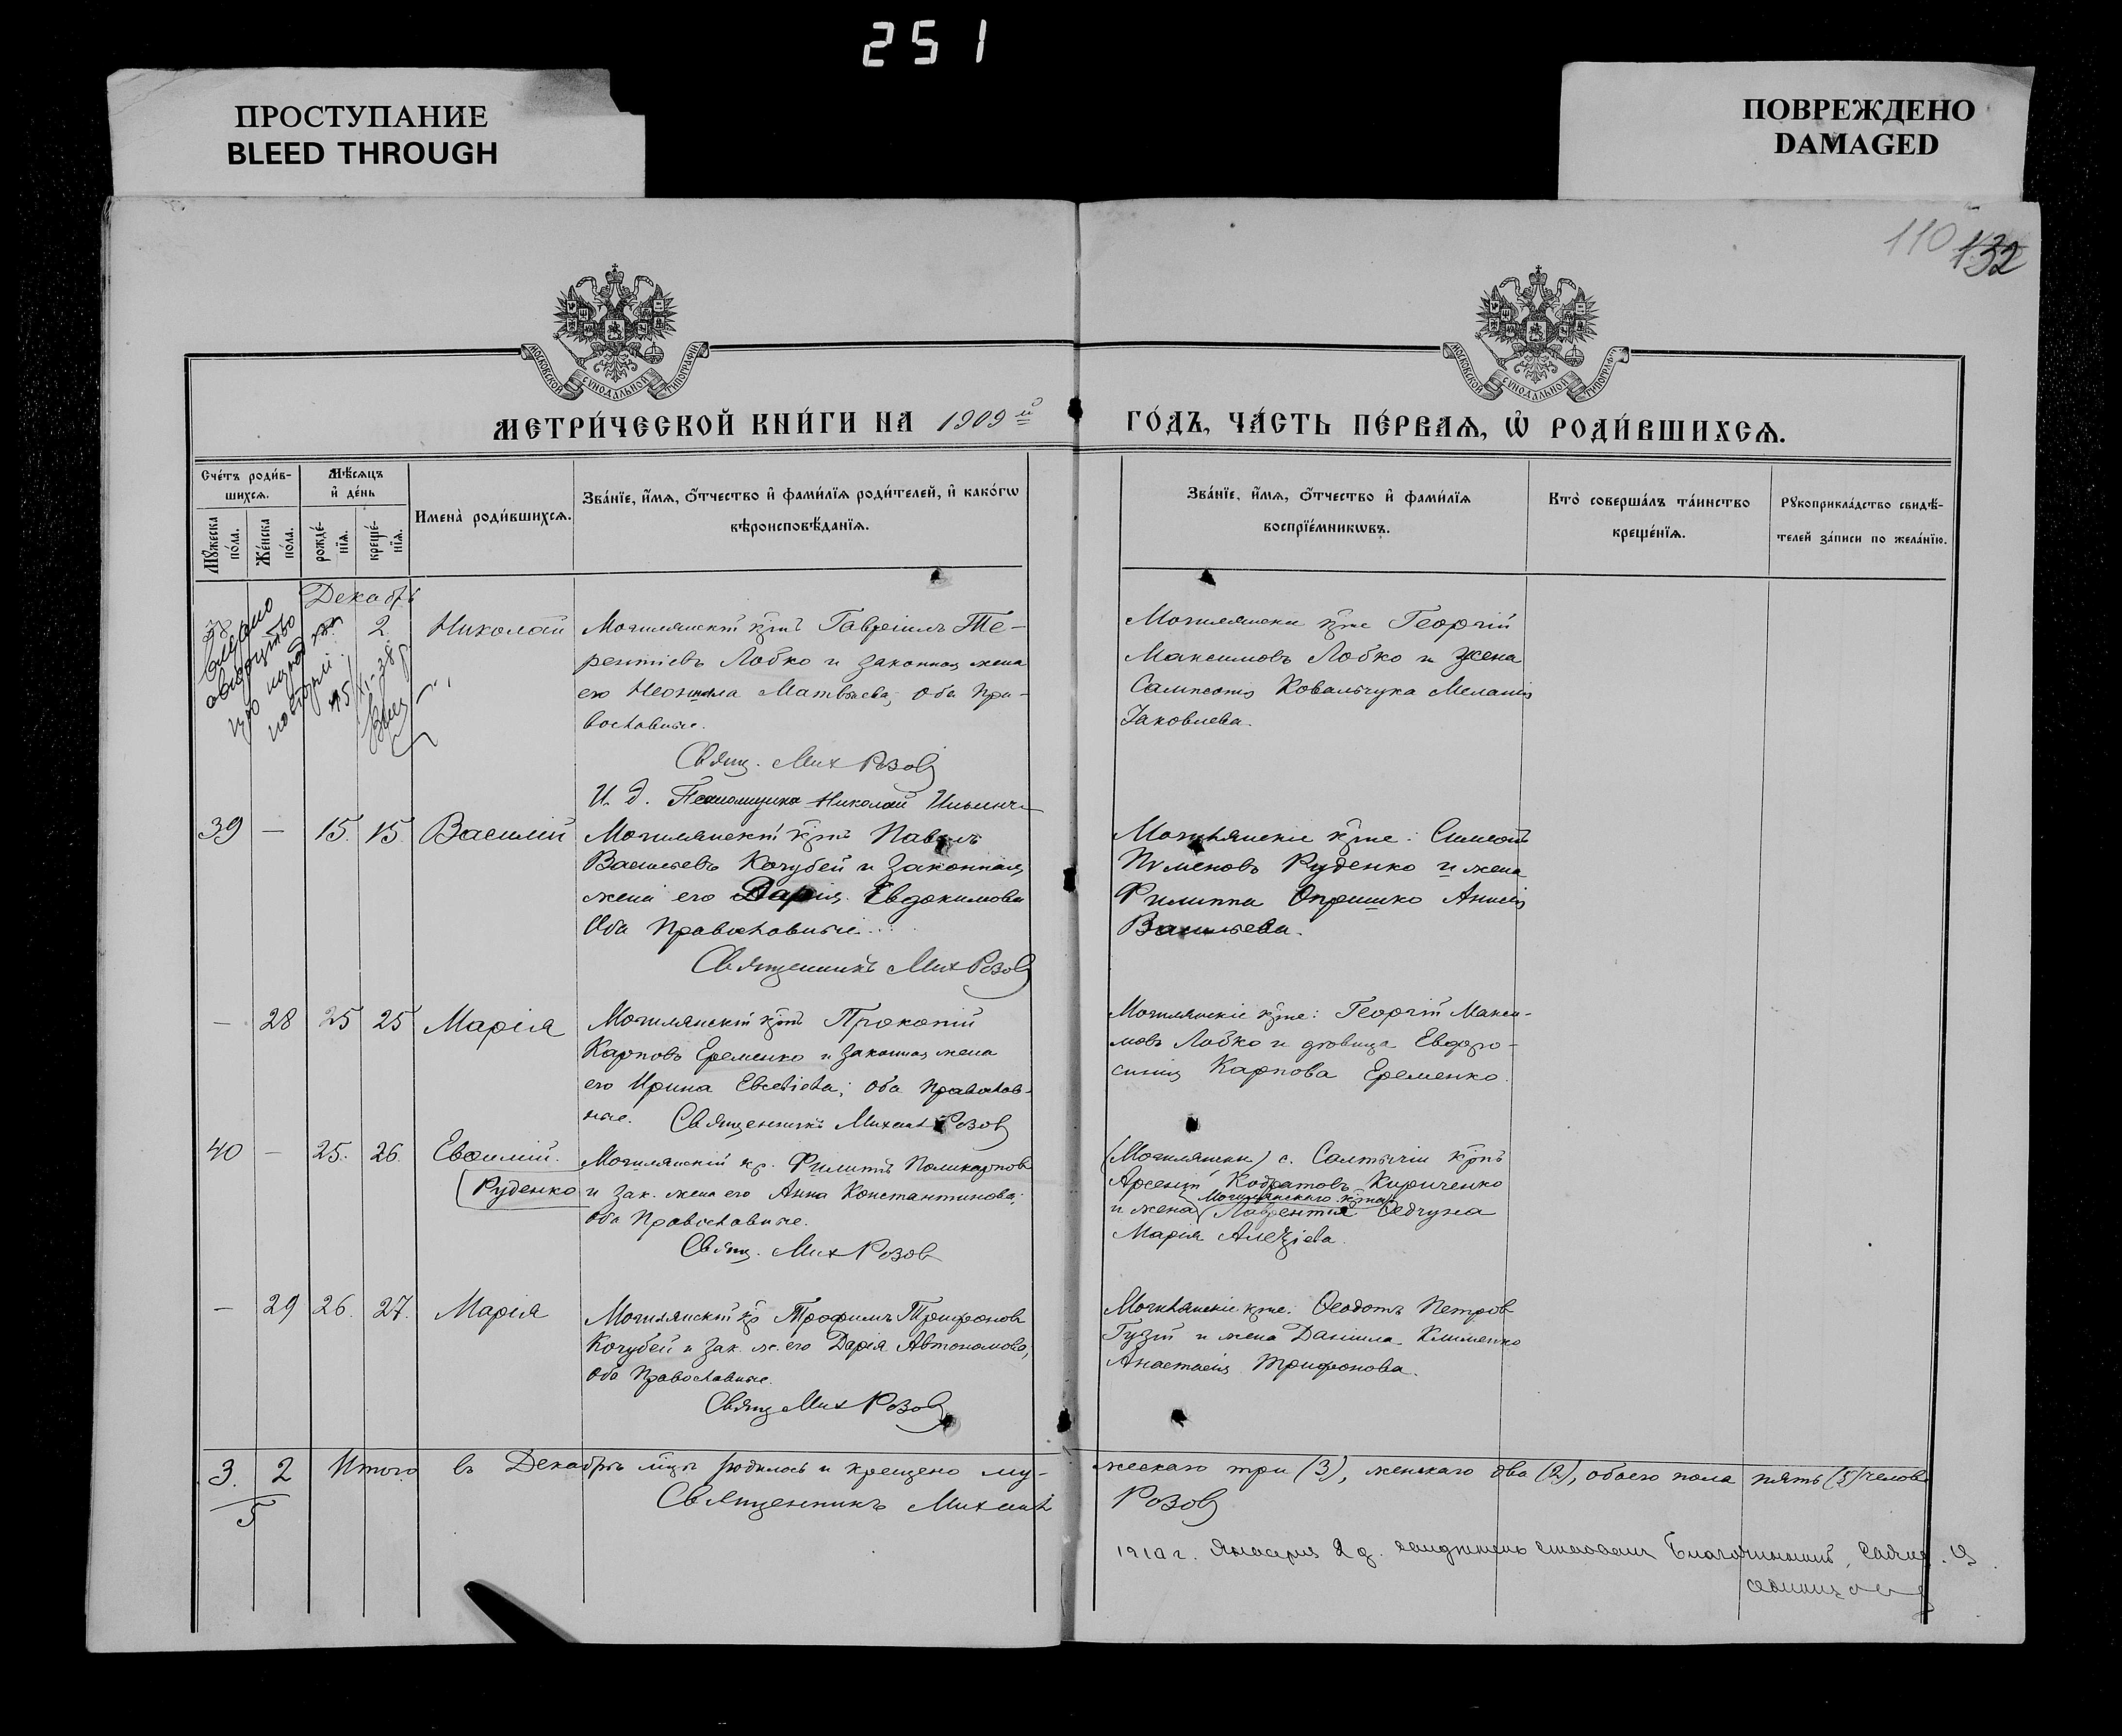 251
ПРОСТУПАНИЕ
BLEED THROUGH
ПОВРЕЖДЕНО
DAMAGED
110 132
МОСКОВСКОЙ СУНОДАЛЬНОЙ ТИПОГРАФІИ
МОСКОВСКОЙ СУНОДАЛЬНОЙ ТИПОГРАФІИ
МЕТРИ́ЧЕСКОЙ КНИ́ГИ НА 1909й ГО́ДЪ, ЧА́СТЬ ПЕ́РВАѦ, Ѡ҆ РОДИ́ВШИХСѦ.
Сче́тъ роди́в-
шихсѧ.
Мꙋ́жеска
по́ла.
Же́нска
по́ла.
Мѣ́сѧцъ
и҆ де́нь
рожде́-
нїѧ.
креще́-
нїѧ.
Имена̀ роди́вшихсѧ.
Зва́нїе, и҆́мѧ, ѻ҆́тчество и҆ фами́лїѧ роди́телей, и҆ како́гѡ
вѣроисповѣ́данїѧ.
Зва́нїе, и҆́мѧ, ѻ҆́тчество и҆ фами́лїѧ
воспрїе́мникѡвъ.
Кто̀ соверша́лъ та́инство
креще́нїѧ.
Рꙋкоприкла́дство свидѣ́-
телей за́писи по жела́нїю.
Декабрь
2. Николай
Могилянскій крнъ Гавріилъ Те-
рентіевъ Лобко и законная жена
его Неонила Матвѣева, оба пра-
вославные.
Свящ. Мих Розов
И. д. Псаломщика Николай
Могилянскіе крне Георгій
Максимовъ Лобко и жена
Сампсона Ковальчука Меланія
Іаковлева.
39 — 15. 15 Василій
Могилянскій крнъ Павелъ
Васильевъ Кочубей и законная
жена его Дарія Евдокимова
Оба Православные.
Священникъ Мих Розов
Могилянскіе крне: Симеонъ
Пименовъ Руденко и жена
Филиппа Опришко Анисія
Васильева.
— 28 25 25 Марія
Могилянскій крнъ Прокопій
Карповъ Еременко и законная жена
его Ирина Евсевіева; оба православ-
ные. Священникъ Михаил Розов
Могилянскіе крне: Георгій Макси-
мовъ Лобко и дѣвица Евфро-
синія Карпова Еременко.
40 — 25. 26. Евѳимій.
Руденко
Могилянскій кр. Филиппъ Поликарпов
и зак. жена его Анна Константинова;
оба Православные.
Свящ. Мих Розов
(Могилянскій) с. Салтычіи крнъ
Арсеній Кодратовъ Кириченко
Могилянскаго крна
и жена Лаврентія Федчуна
Марія Алексіева.
— 29 26. 27. Марія
Могилянскій кр Трофимъ Трифонов
Кочубей и зак. ж. его Дарія Автономова,
оба Православные.
Свящ Мих Розов
Могилянскіе крне: Ѳеодотъ Петров
Гузій и жена Даніила Клименко
Анастасія Трифонова.
3. 2 Итого въ Декабрѣ мцѣ родилось и крещено му-
жескаго три (3), женскаго два (2), обоего пола пять (5) челов
5
Священникъ Михаил
Розов
1910 г. Января 2 д. Благочинный, свящ.